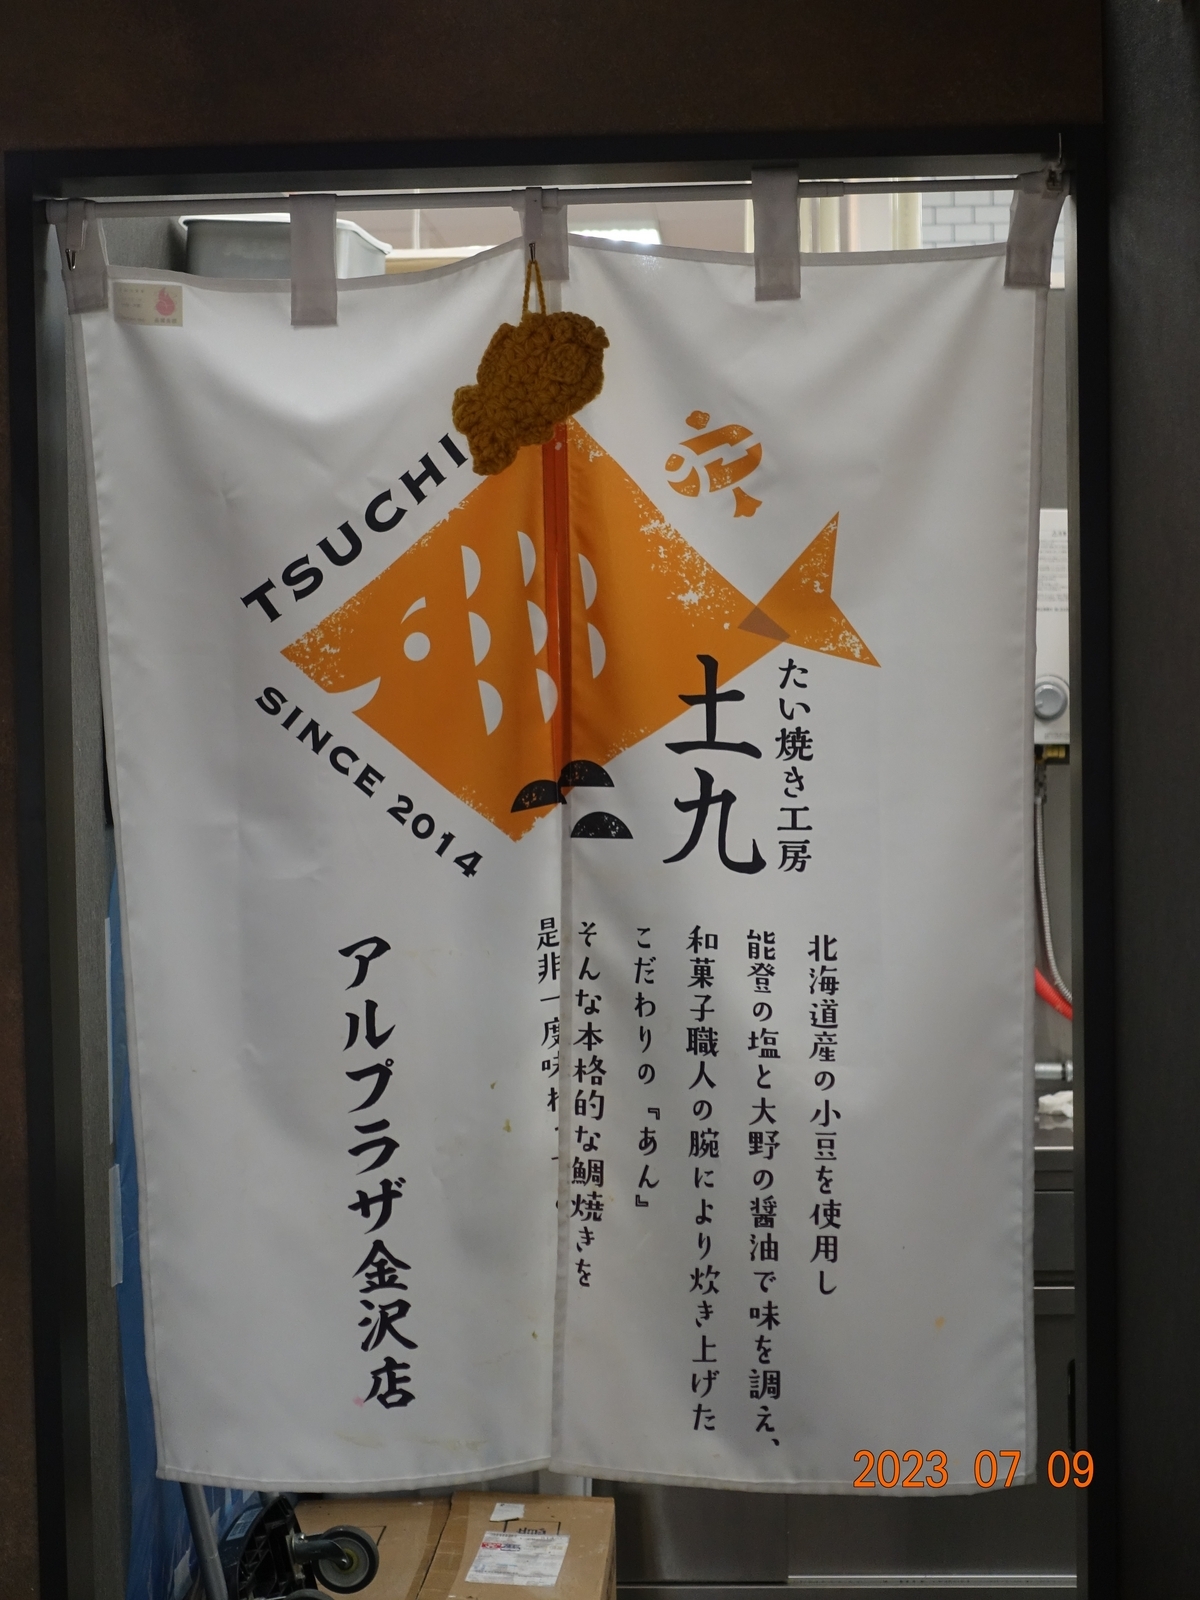 TSUCHI
SINCE 2014
たい焼き工房
土九
北海道産の小豆を使用し
能登の塩と大野の醤油で味を調え、
和菓子職人の腕により炊き上げた
こだわりの『あん』
そんな本格的な鯛焼きを
是非一度味わ
アルプラザ金沢店
2023 07 09